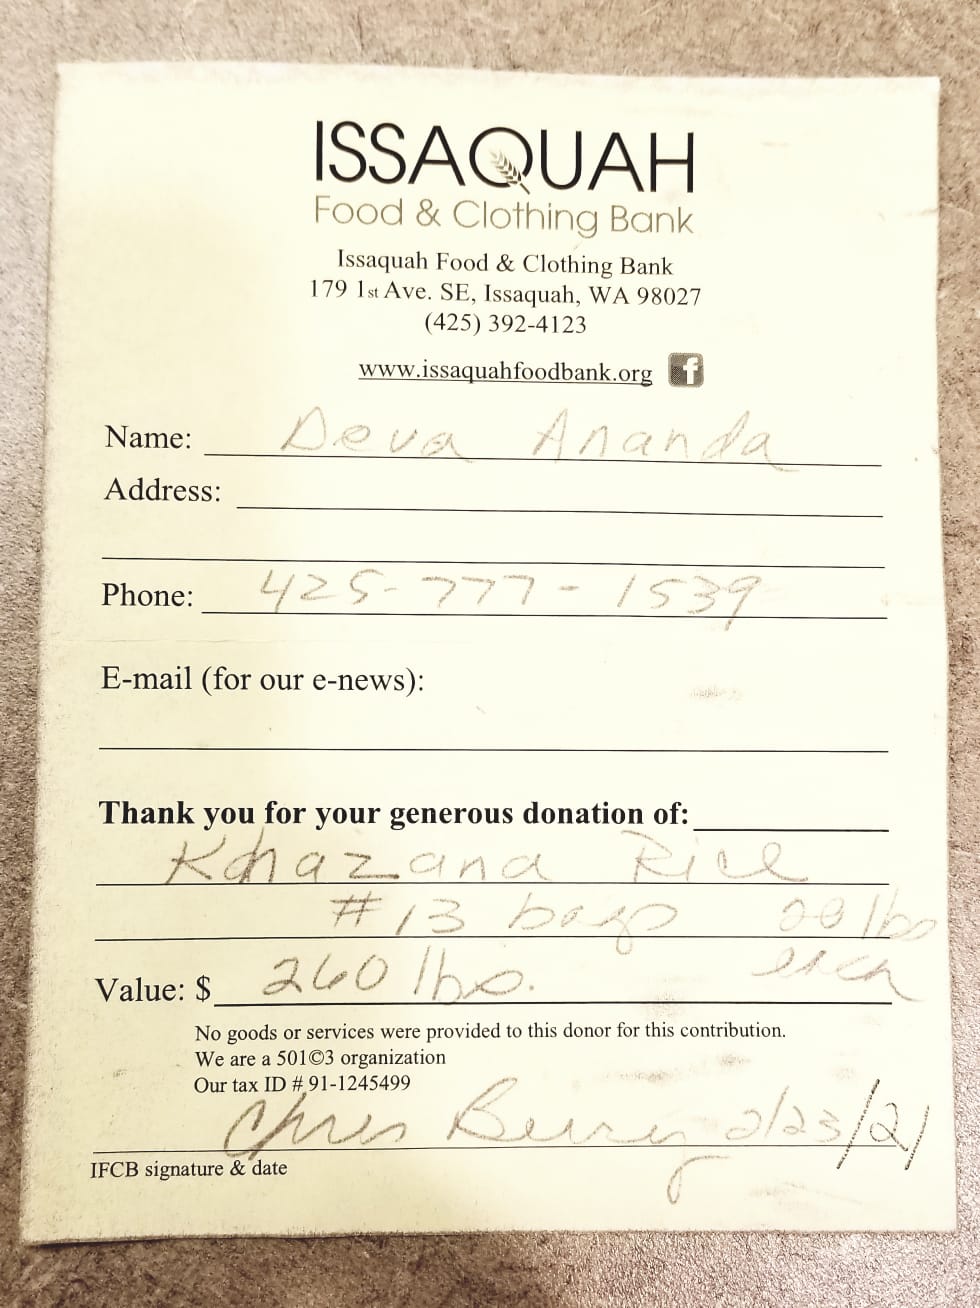 ISSAQUAH
Food & Clothing Bank
Issaquah Food & Clothing Bank
179 1st Ave. SE, Issaquah, WA 98027
(425) 392-4123
www.issaquahfoodbank.org f
Name: Deva Ananda
Address:
Phone: 425-777-1539
E-mail (for our e-news):
Thank you for your generous donation of:
Khazana Rice
#13 bags 20 lbs
each
Value: $ 260 lbs.
No goods or services were provided to this donor for this contribution.
We are a 501©3 organization
Our tax ID # 91-1245499
Chris 2/23/21
IFCB signature & date